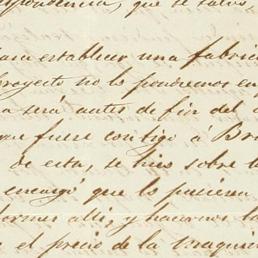 pondencia, que se salvo,
para establecer una fabric
proyecto no lo pondremos en
a será antes de fin del a
que fuere contigo á Br
de esta, se hizo sobre l
encargó que la pusiera
formes alli, y hacernos la
e el precio de la maquin